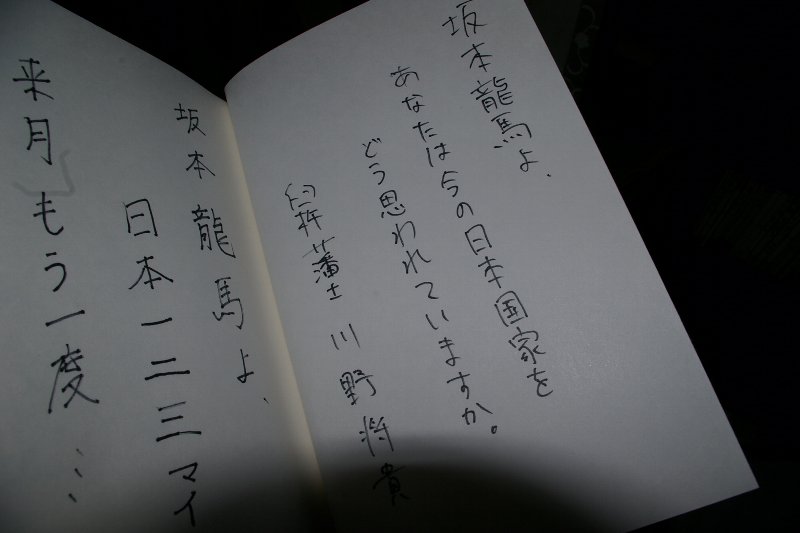 坂本龍馬よ、
あなたは今の日本国家を
どう思われていますか。
臼杵藩士 川野将貴
坂本龍馬よ、
日本一二三マイ
来月もう一度…